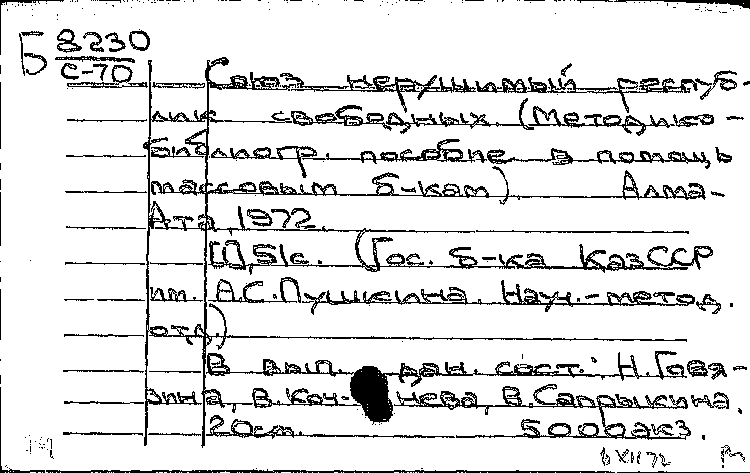 Б 8230
С-70
Союз нерушимый респуб-
лик свободных. (Методико-
библиогр. пособие в помощь
массовым б-кам). Алма-
Ата, 1972.
[1], 51с. (Гос. б-ка КазССР
им. А.С.Пушкина. Науч.-метод.
отд.)
В вып. дан. сост.: Н.Говя-
зина, В.Коч-нева, В.Сапрыкина.
20см. 5000экз.
6 XII 72